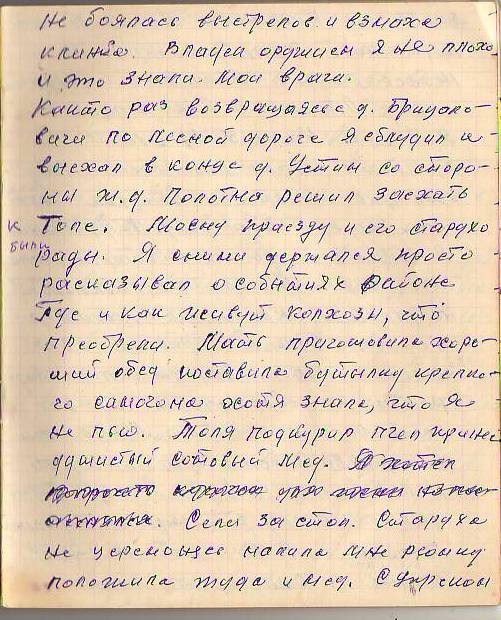 не боялась выстрелов и взмаха
клинка. Владел оружием я не плохо
и это знали мои враги.
Както раз возвращаясь с д. Брицало-
вичи по лесной дороге я сблудил и
выехал в конце д. Устин со сторо-
ны ж.д. полотна решил заехать
к Толе. Моему приезду и его старухо
были рады. Я сними держался просто
расказывал о событиях района
Где и как живут колхозы, что
преобрели. Мать приготовила харо-
ший обед поставила бутылку крепко-
го самогона хотя знала, что я
не пью. Толя подкурил пчел принес
душистый сотовый мед. Я хотел
. Сели за стол. Старуха
не церемонясь налила мне рюмку
положила туда и мед. С Ефремом